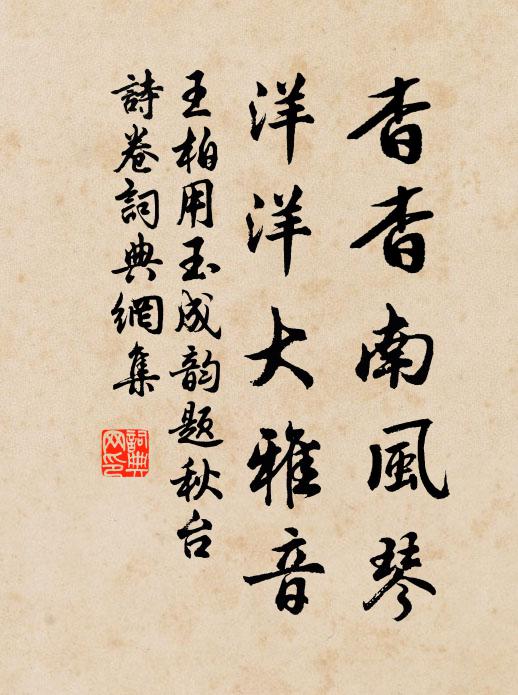 杳杳南風琴
洋洋大雅音
王柏用玉成韵題秋台
詩卷詞典網集
詞典网印